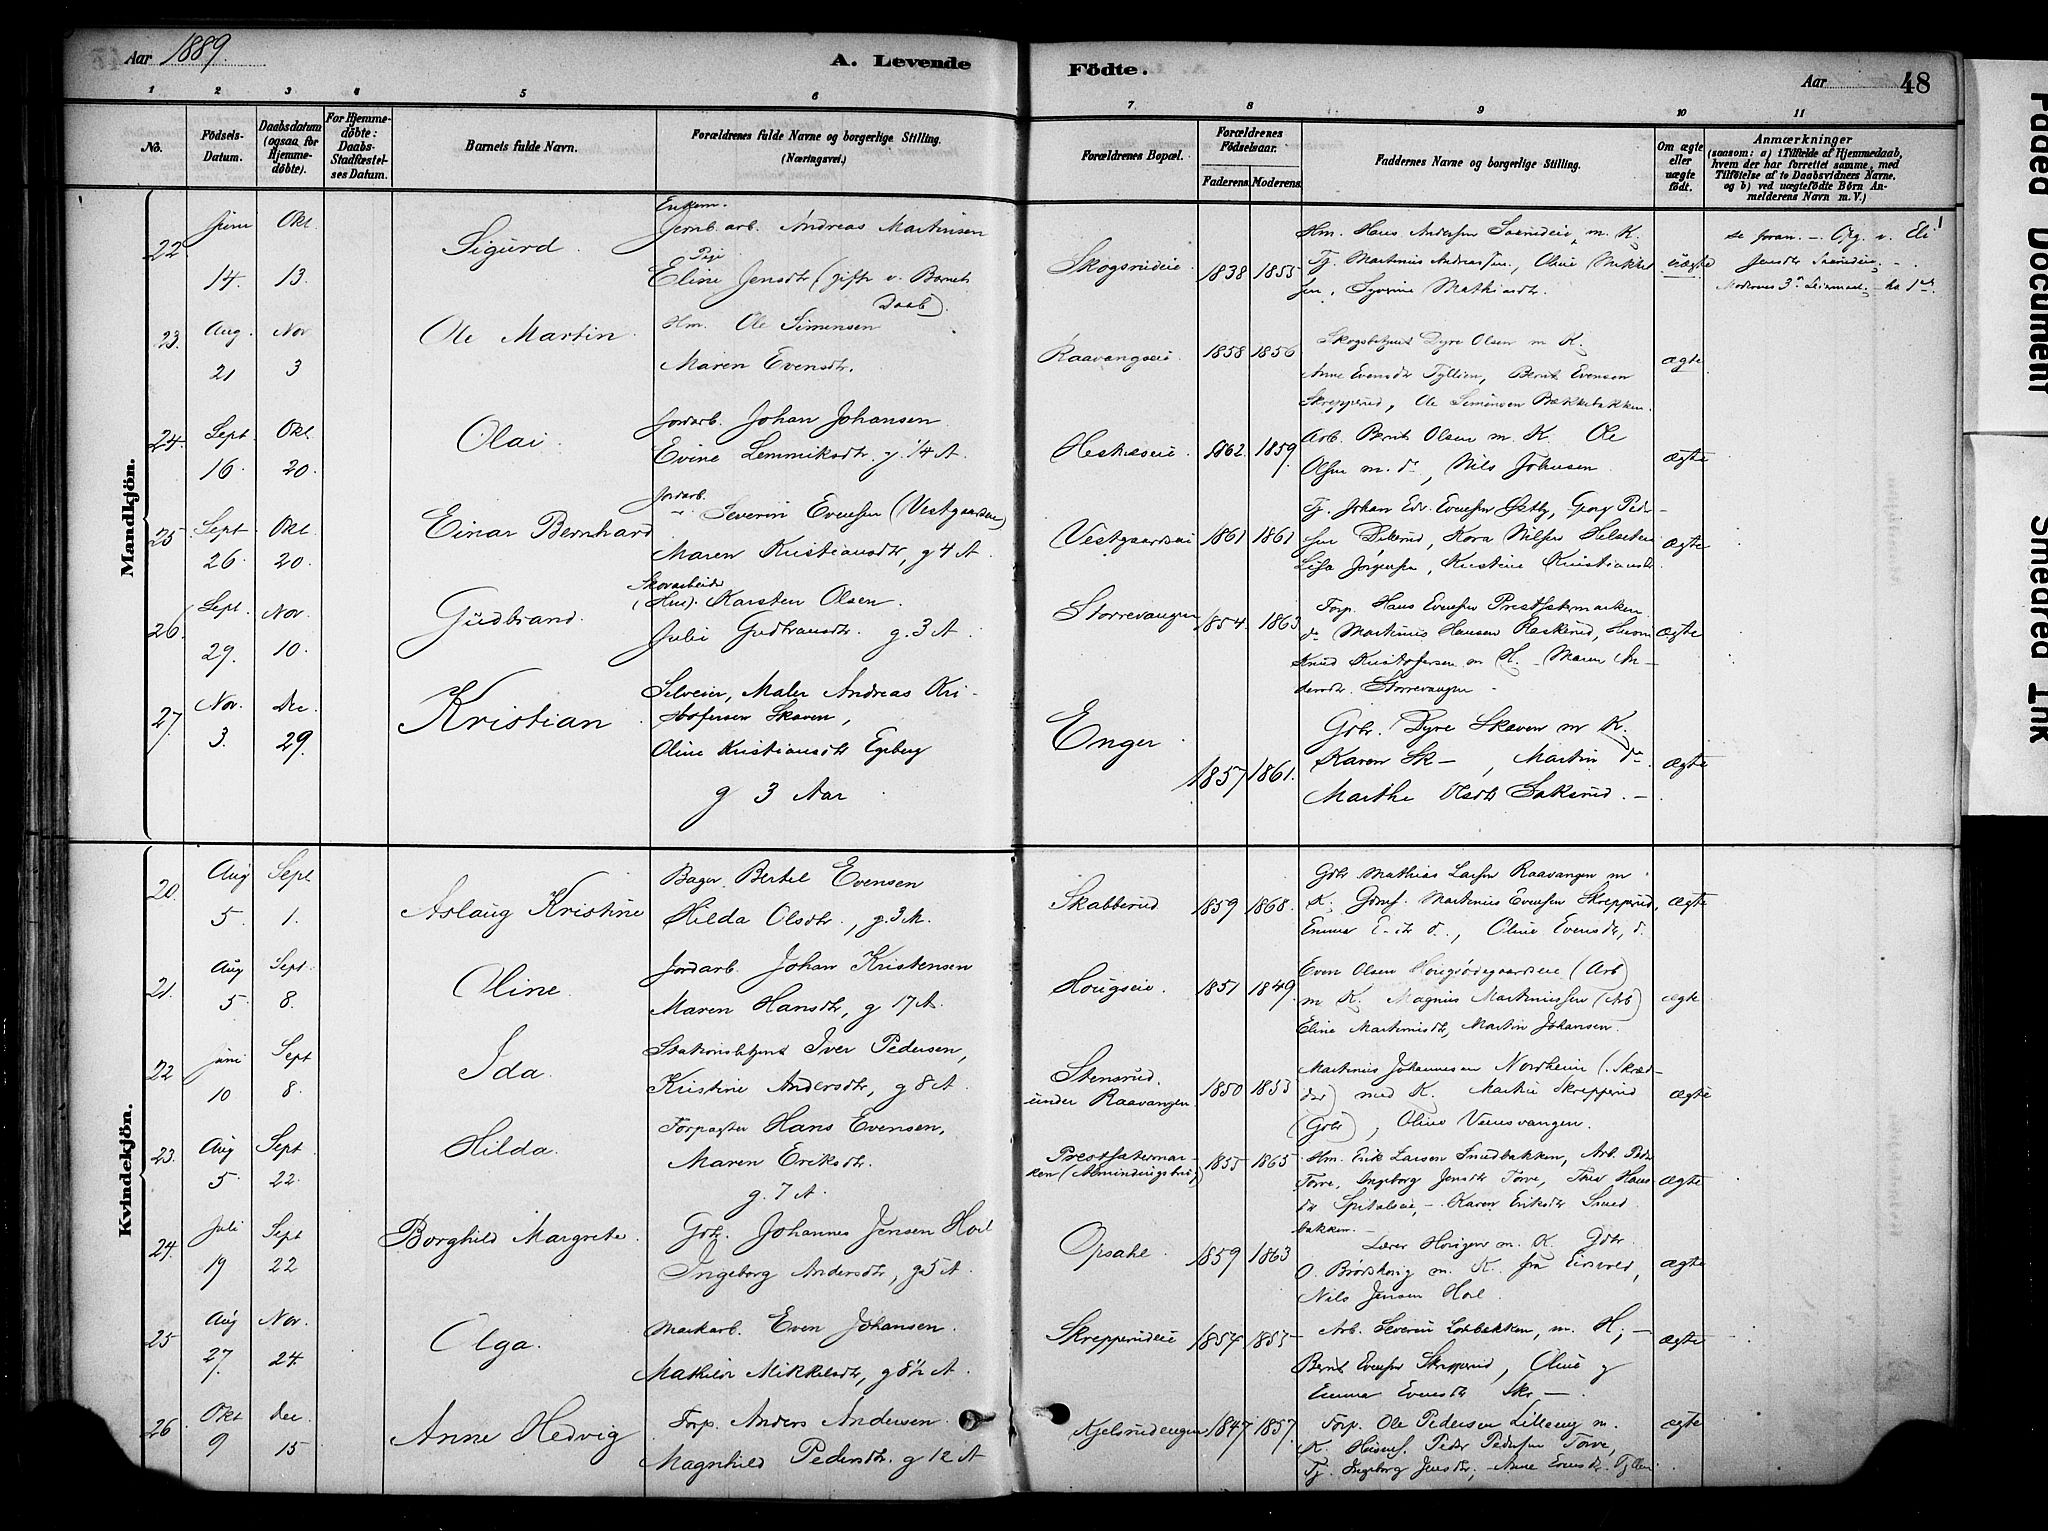 Aar 1889.
A. Levende
Födte.
Aar
48
1 2 3 4 5 6 7 8 9 10 11
No.
Födsels-
Datum.
Daabsdatum
(ogsaa for
Hjemme-
döbte).
For Hjemme-
döbte:
Daabs-
Stadfæstel-
ses Datum.
Barnets fulde Navn.
Forældrenes fulde Navne og borgerlige Stilling.
(Næringsvei.)
Forældrenes Bopæl.
Forældrenes
Födselsaar.
Faderens. Moderens.
Faddernes Navne og borgerlige Stilling.
Om ægte
eller
uægte
födt.
Anmærkninger
(saasom: a) i Tilfælde af Hjemmedaab,
hvem der har forrettet samme, med
Tilföielse af to Daabsvidners Navne,
og b) ved uægtefödte Börn An-
melderens Navn m. V.)
Mandkjön.
22. Juni 14. Okt. 13.
Sigurd
Enkem.
Jernb. arb. Andreas Martinsen
Pige
Eline Jensdtr (gift v. Barnets
Daab)
Skogsrudeie 1838 1855
Hm. Hans Andersen m. K.
Tj. Martinus Andreassen, Oline Mikkel
sen, Syverine Mathiasdtr.
uægte
se foran. — Opg. v. Eli
Jensdtr
Moderens 3die Leiermaal
23. Aug. 21 Nov 3
Ole Martin
Hm. Ole Simensen
Maren Evensdtr.
Raavangseie 1858 1856
Skogsbetjent Dyre Olsen m K.
Anne Evensdtr Tyllien, Bernt Evensen
Skrepperud, Ole Simensen Bækkebakken.
ægte
24. Sept. 16. Okt. 20.
Olai.
Jordarb. Johan Johansen
Evine Lemmiksdtr. g. 14 A.
Heskuseie 1862. 1859
Arb. Bernt Olsen m. K. Ole
Olsen m. do, Nils Johnsen
ægte
25. Sept. 26. Okt. 20.
Einar Bernhard
Jordarb.
Severin Evensen (Vestgaardseie)
Maren Kristiansdtr, g 4 A.
Vestgaardseie 1861 1861
Tj. Johan Edv. Evensen Østby, Georg Peder-
sen, Kora Nilsen Helseten
Lisa Jørgensen, Kristine Kristiansdtr
ægte
26. Sept. 29. Nov. 10.
Gudbrand.
Skovarbeider
(Hm). Karsten Olsen.
Julie Gudbrandsdtr. g. 3 A.
Storrevangen 1854. 1863
Forp. Hans Evensen Prestsætermarken
do Martinus Hansen Raskerud,
Knud Kristofersen m K. — Maren An-
dersdtr. Storrevangen —
ægte
27. Nov. 3. Dec. 29.
Kristian
Selveier, Maler Andreas Kri-
stofersen Skaven,
Oline Kristiansdtr Egeberg
g 3 Aar
Enger 1857 1861.
Gbr. Dyre Skaven m K.
Karen Sk—, Martin do
Marthe Olsdtr Saksrud. —
ægte
Kvindekjön.
20. Aug 5. Sept 1.
Aslaug Kristine
Bager Bertel Evensen
Hilda Olsdtr., g. 3 M.
Skabberud 1859 1868.
Gbr Mathias Larsen Raavangen m
K. Gbrs. Martinius Evensen Skrepperud,
Emma E—dtr d., Oline Evensdtr, d.
ægte
21. Aug 5. Sept. 8.
Oline.
Jordarb. Johan Kristensen
Maren Hansdtr, g 17 A.
Hougseie. 1851 1849.
Even Olsen Hougsødegaardseie (Arb)
m K. Magnus Martiniussen (Arb)
Eline Martinusdtr, Martin Johansen.
ægte
22 Juni 10 Sept 8.
Ida.
Stationsbetjent Iver Pedersen,
Kristine Andersdtr, g 8 A.
Stensrud
under Raavangen. 1850 1853
Martinus Johannesen Nordheim (Skræd
der) med K. Martin Skrepperud
(Gbr), Oline Vennsvangen.
ægte
23. Aug 5. Sept. 22.
Hilda.
Forpagter Hans Evensen,
Maren Eriksdtr.
g. 7 A.
Prestsætermar-
ken (Almindingsbrug) 1855 1865
Hm. Erik Larsen Smedbakken, Arb. Peder
Torve, Ingeborg Jensdtr Torve, Thea Hans
dtr Spitalseie, — Karen Eriksdtr Smed
bakken —
ægte
24. Juli 19 Sept 22
Borghild Margrete.
Gbr. Johannes Jensen Hoel
Ingeborg Andersdtr, g 5 A.
Opsahl. 1859 1863
Lærer Hougen m. K. Gbr.
O. Brodshoug m. K. fra Eidsvold,
Nils Jensen Hoel.
ægte
25 Aug 27. Nov. 24.
Olga.
Markarb. Even Johansen.
Mathilde Mikkelsdtr, g 8½ A.
Skrepperudeie 1854 1855
Arb. Severin Lobbakken, m. K; —
Bernt Evensen Skrepperud, Oline g
Emma Evensdtr Skr —.
ægte
26 Okt 9 Dec. 15
Anne Hedvig
Forp. Anders Andersen
Magnhild Pedersdtr. g 12 A.
Kjelsrudengen 1847 1857.
Forp. Ole Pedersen Lilleeng m.
K. Husmf. Peder Pedersen Torve,
Tj. Ingeborg Jensdtr, — Anne Evensdtr. Tyllien.
ægte
Faded Document
Smedred Ink